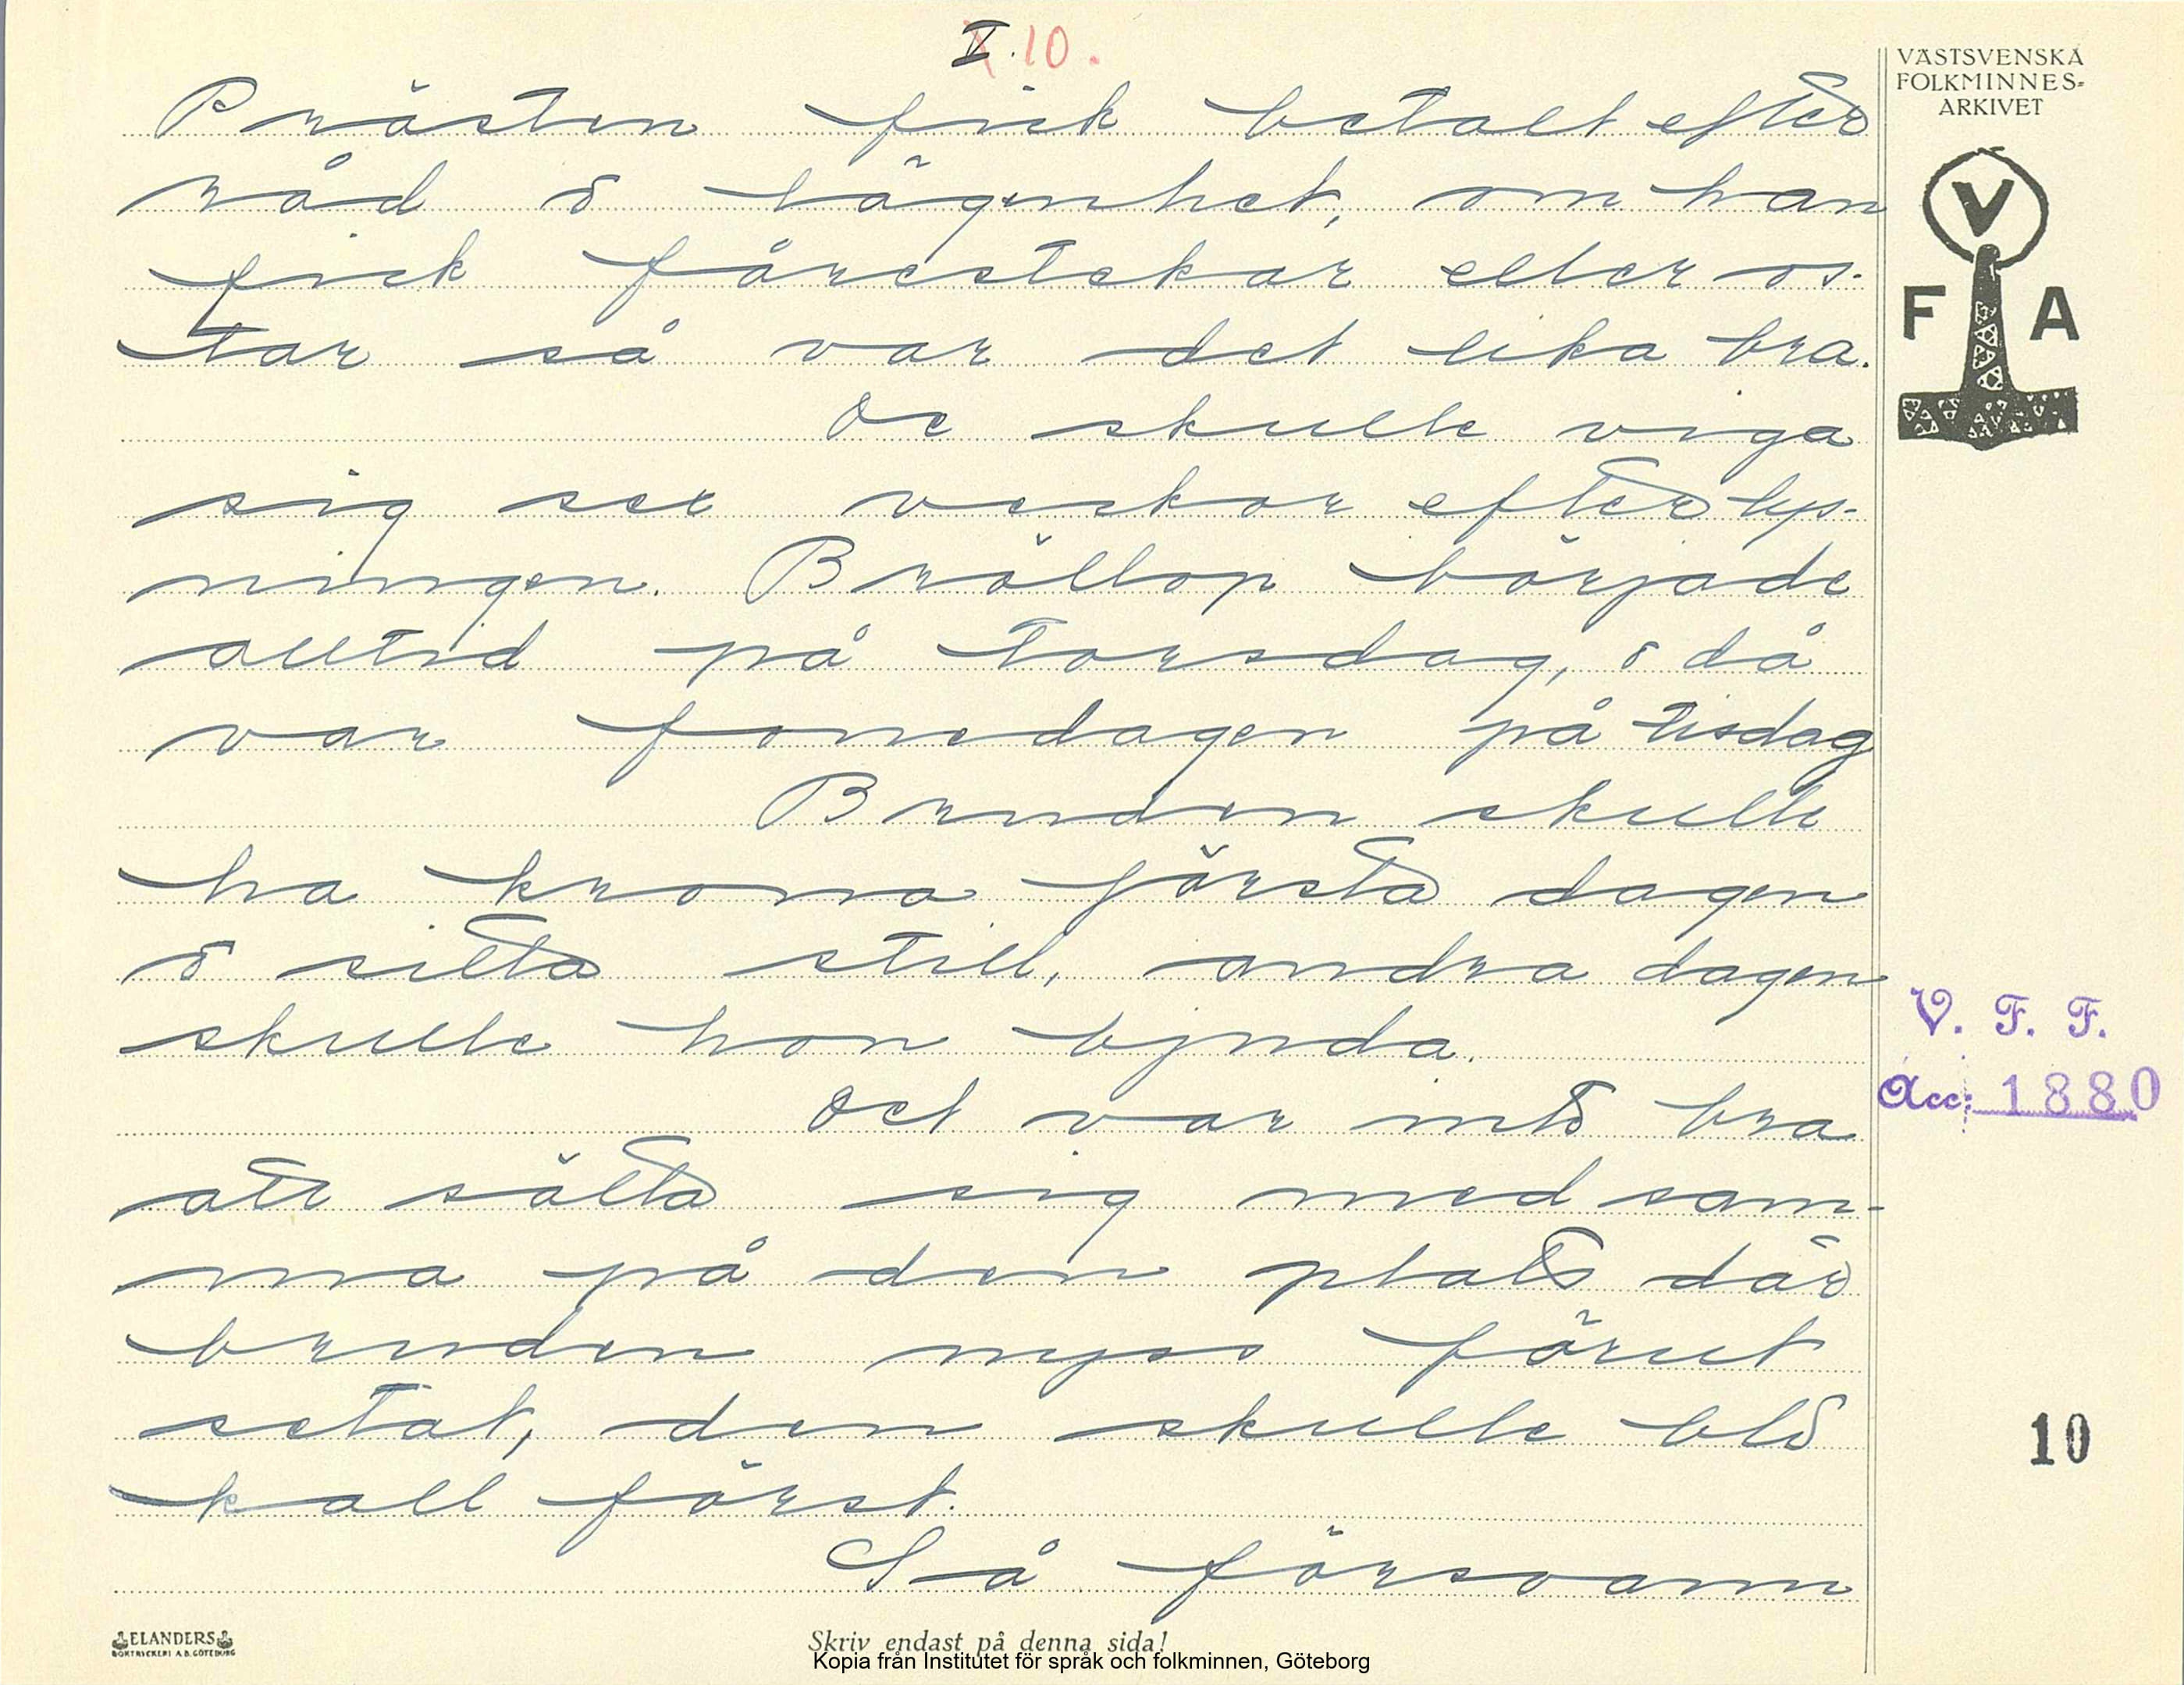 I.10.
VÄSTSVENSKA
FOLKMINNES-
ARKIVET
V
F A
Prästen fick betalt efter
råd o lägenhet, om han
fick fårestekar eller os-
tar så var det lika bra.
De skulle viga
sig sex veckor efter lys-
ningen. Bröllop började
alltid på torsdag, o då
var fonedagen på tisdag
Bruden skulle
ha krona första dagen
o sitta still, andra dagen
skulle hon bjuda.
Det var inte bra
att sätta sig med sam-
ma på den plats där
bruden nyss förut
setat, den skulle bli
kall först.
Så försvann
V. F. F.
Acc: 1880
10
ELANDERS
BOKTRYCKERI A.B. GÖTEBORG
Skriv endast på denna sida!
Kopia från Institutet för språk och folkminnen, Göteborg